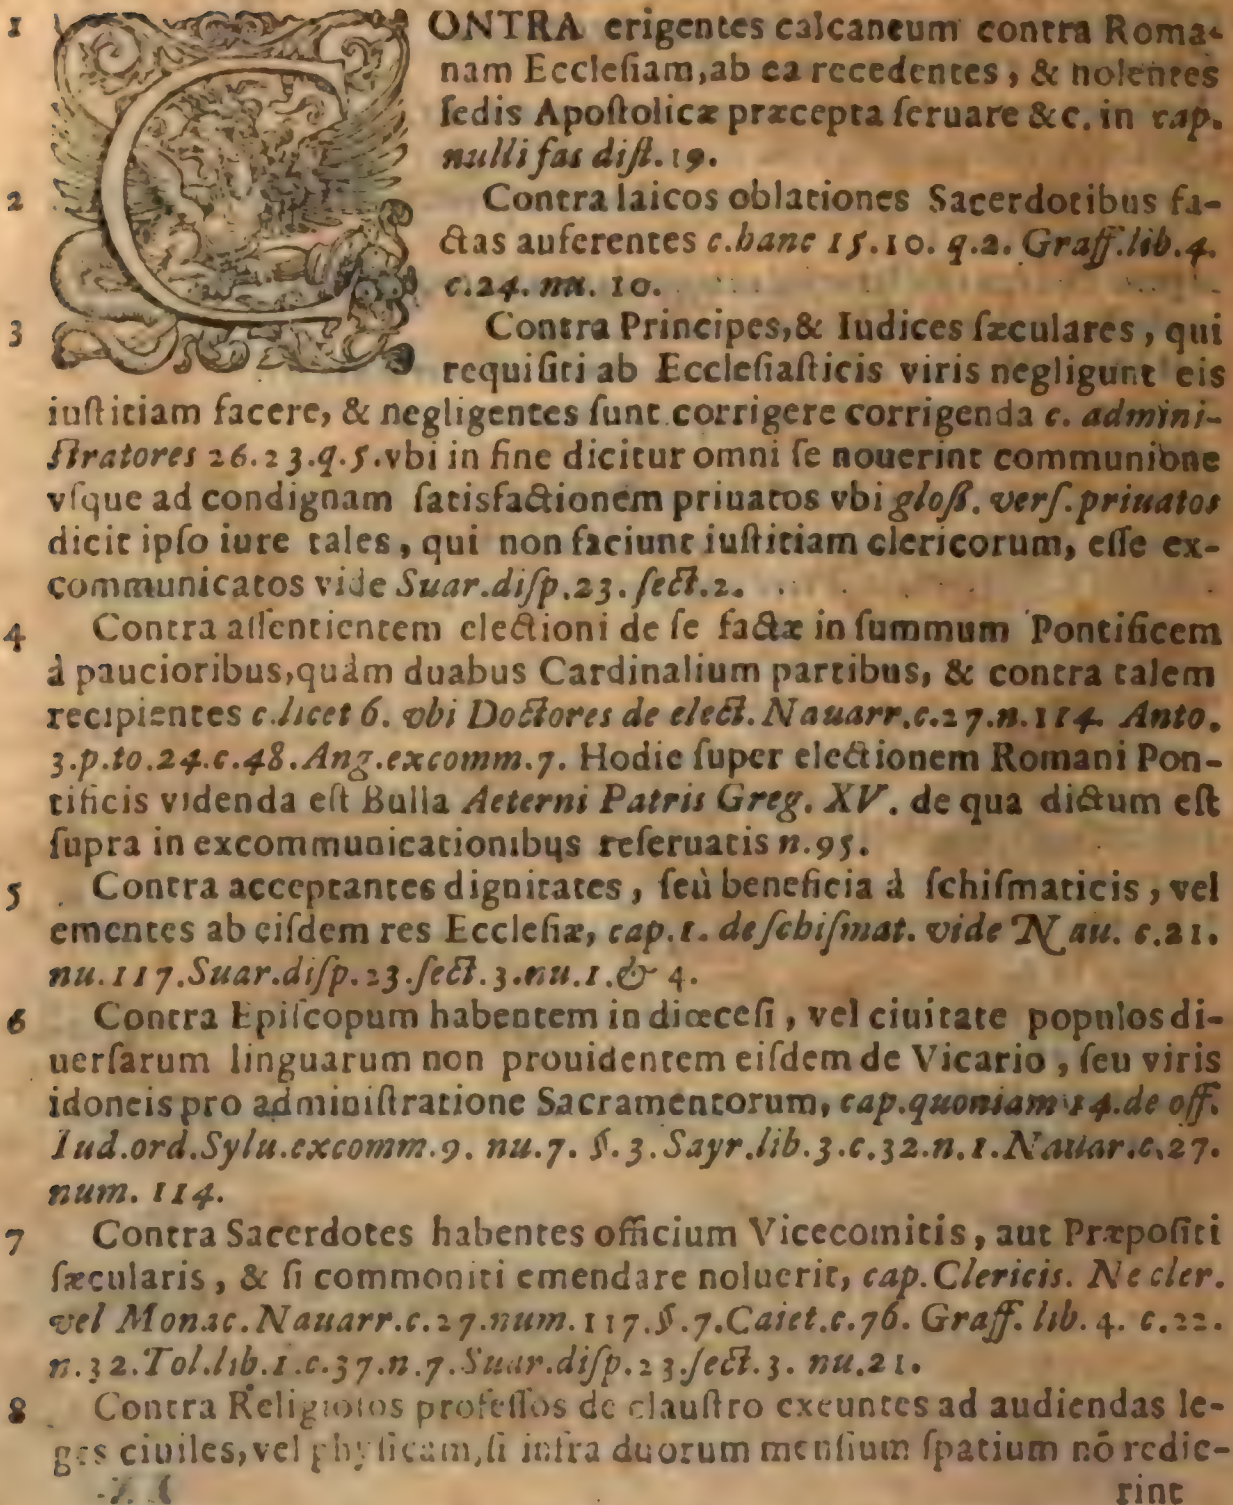 1 CONTRA erigentes calcaneum contra Roma-
nam Eccleſiam, ab ea recedentes, & nolentes
ſedis Apoſtolicæ præcepta ſeruare &c. in cap.
nulli fas diſt. 19.
2 Contra laicos oblationes Sacerdotibus fa-
ctas auferentes c. hanc 15. 10. q. 2. Graff. lib. 4.
c. 24. nu. 10.
3 Contra Principes, & Iudices ſæculares, qui
requiſiti ab Eccleſiaſticis viris negligunt eis
iuſtitiam facere, & negligentes ſunt corrigere corrigenda c. admini-
ſtratores 26. 23. q. 5. vbi in fine dicitur omni ſe nouerint communione
vſque ad condignam ſatisfactionem priuatos vbi gloſſ. verſ. priuatos
dicit ipſo iure tales, qui non faciunt iuſtitiam clericorum, eſſe ex-
communicatos vide Suar. diſp. 23. ſect. 2.
4 Contra aſſentientem electioni de ſe factæ in ſummum Pontificem
à paucioribus, quàm duabus Cardinalium partibus, & contra talem
recipientes c. licet 6. vbi Doctores de elect. Nauarr. c. 27. n. 114. Anto.
3. p. to. 24. c. 48. Ang. excomm. 7. Hodie ſuper electionem Romani Pon-
tificis videnda eſt Bulla Aeterni Patris Greg. XV. de qua dictum eſt
ſupra in excommunicationibus reſeruatis n. 95.
5 Contra acceptantes dignitates, ſeù beneficia à ſchiſmaticis, vel
ementes ab eiſdem res Eccleſiæ, cap. 1. de ſchiſmat. vide Nau. c. 21.
nu. 117. Suar. diſp. 23. ſect. 3. nu. 1. & 4.
6 Contra Epiſcopum habentem in diœceſi, vel ciuitate populos di-
uerſarum linguarum non prouidentem eiſdem de Vicario, ſeu viris
idoneis pro adminiſtratione Sacramentorum, cap. quoniam 14. de off.
Iud. ord. Sylu. excomm. 9. nu. 7. §. 3. Sayr. lib. 3. c. 32. n. 1. Nauar. c. 27.
num. 114.
7 Contra Sacerdotes habentes officium Vicecomitis, aut Præpoſiti
ſæcularis, & ſi commoniti emendare noluerit, cap. Clericis. Ne cler.
vel Monac. Nauarr. c. 27. num. 117. §. 7. Caiet. c. 76. Graff. lib. 4. c. 22.
n. 32. Tol. lib. 1. c. 37. n. 7. Suar. diſp. 23. ſect. 3. nu. 21.
8 Contra Religioſos profeſſos de clauſtro exeuntes ad audiendas le-
ges ciuiles, vel phyſicam, ſi infra duorum menſium ſpatium nõ redie-
rint